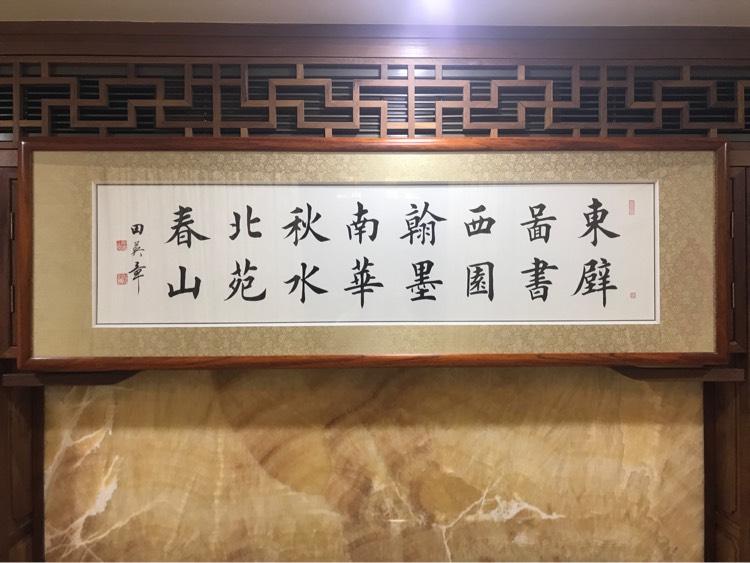 東壁
啚書
西園
翰墨
南華
秋水
北苑
春山
田英章